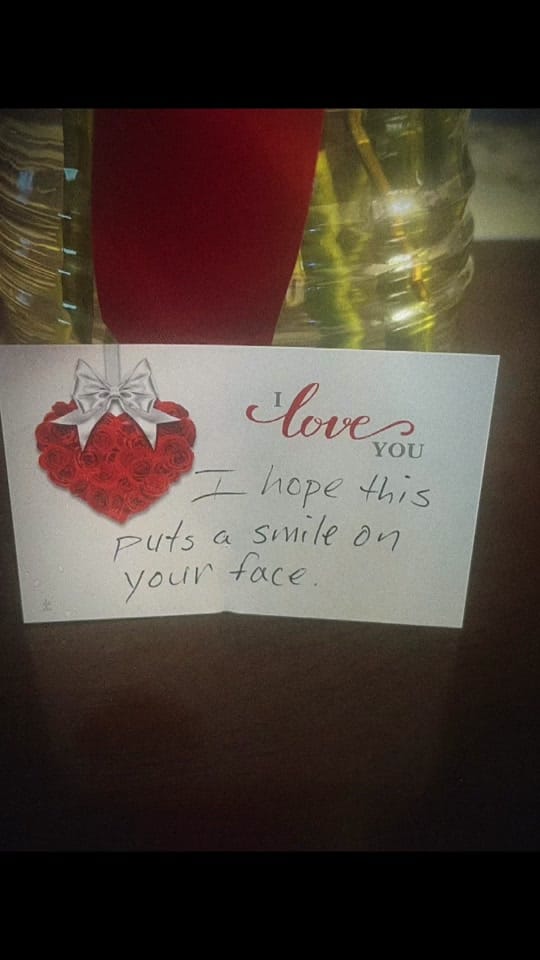 I
love
YOU
I hope this
puts a smile on
your face.